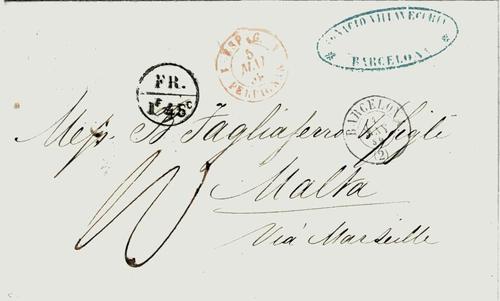 IGNACIO VILLAVECCHIA
BARCELONA
ESPAG.
5
MAI
PERPIGNAN
FR.
1F 45C
BARCELONA
(2)
Messrs B. Tagliaferro & figli
Malta
Via Marseille